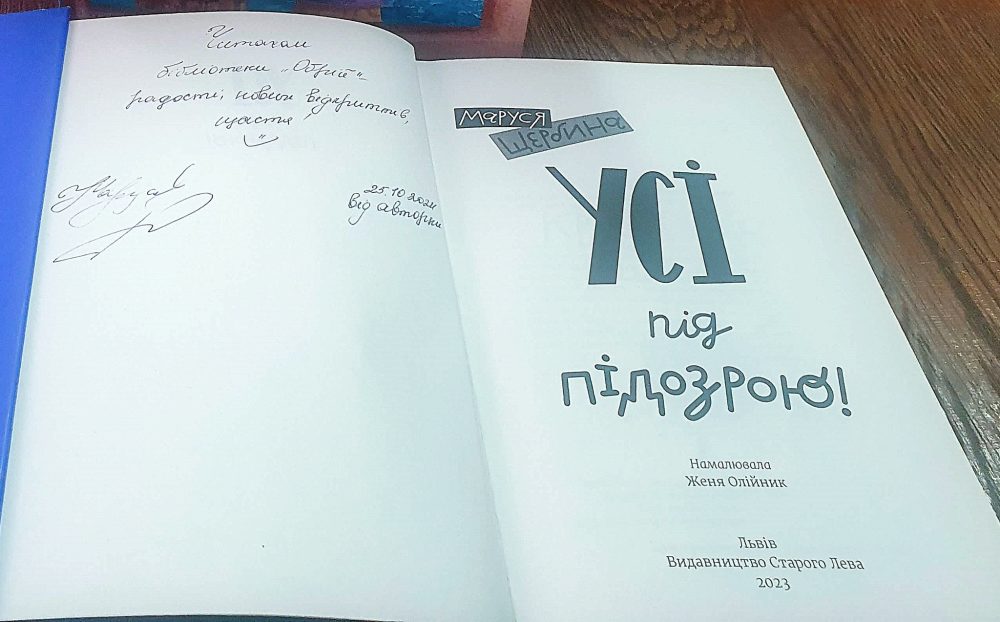 Читачам
бібліотеки „Обрій"
радості, нових відкриттів,
щастя!
25.10.2024
від авторки
Маруся
Щербина
Усі
під
підозрою!
Намалювала
Женя Олійник
Львів
Видавництво Старого Лева
2023